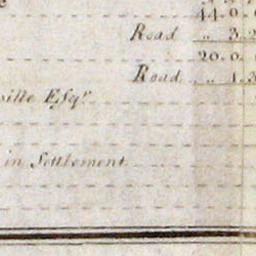 44.0.
Road „ 3.2
20.0.
Road „ 1.3
Esqr.
in Settlement